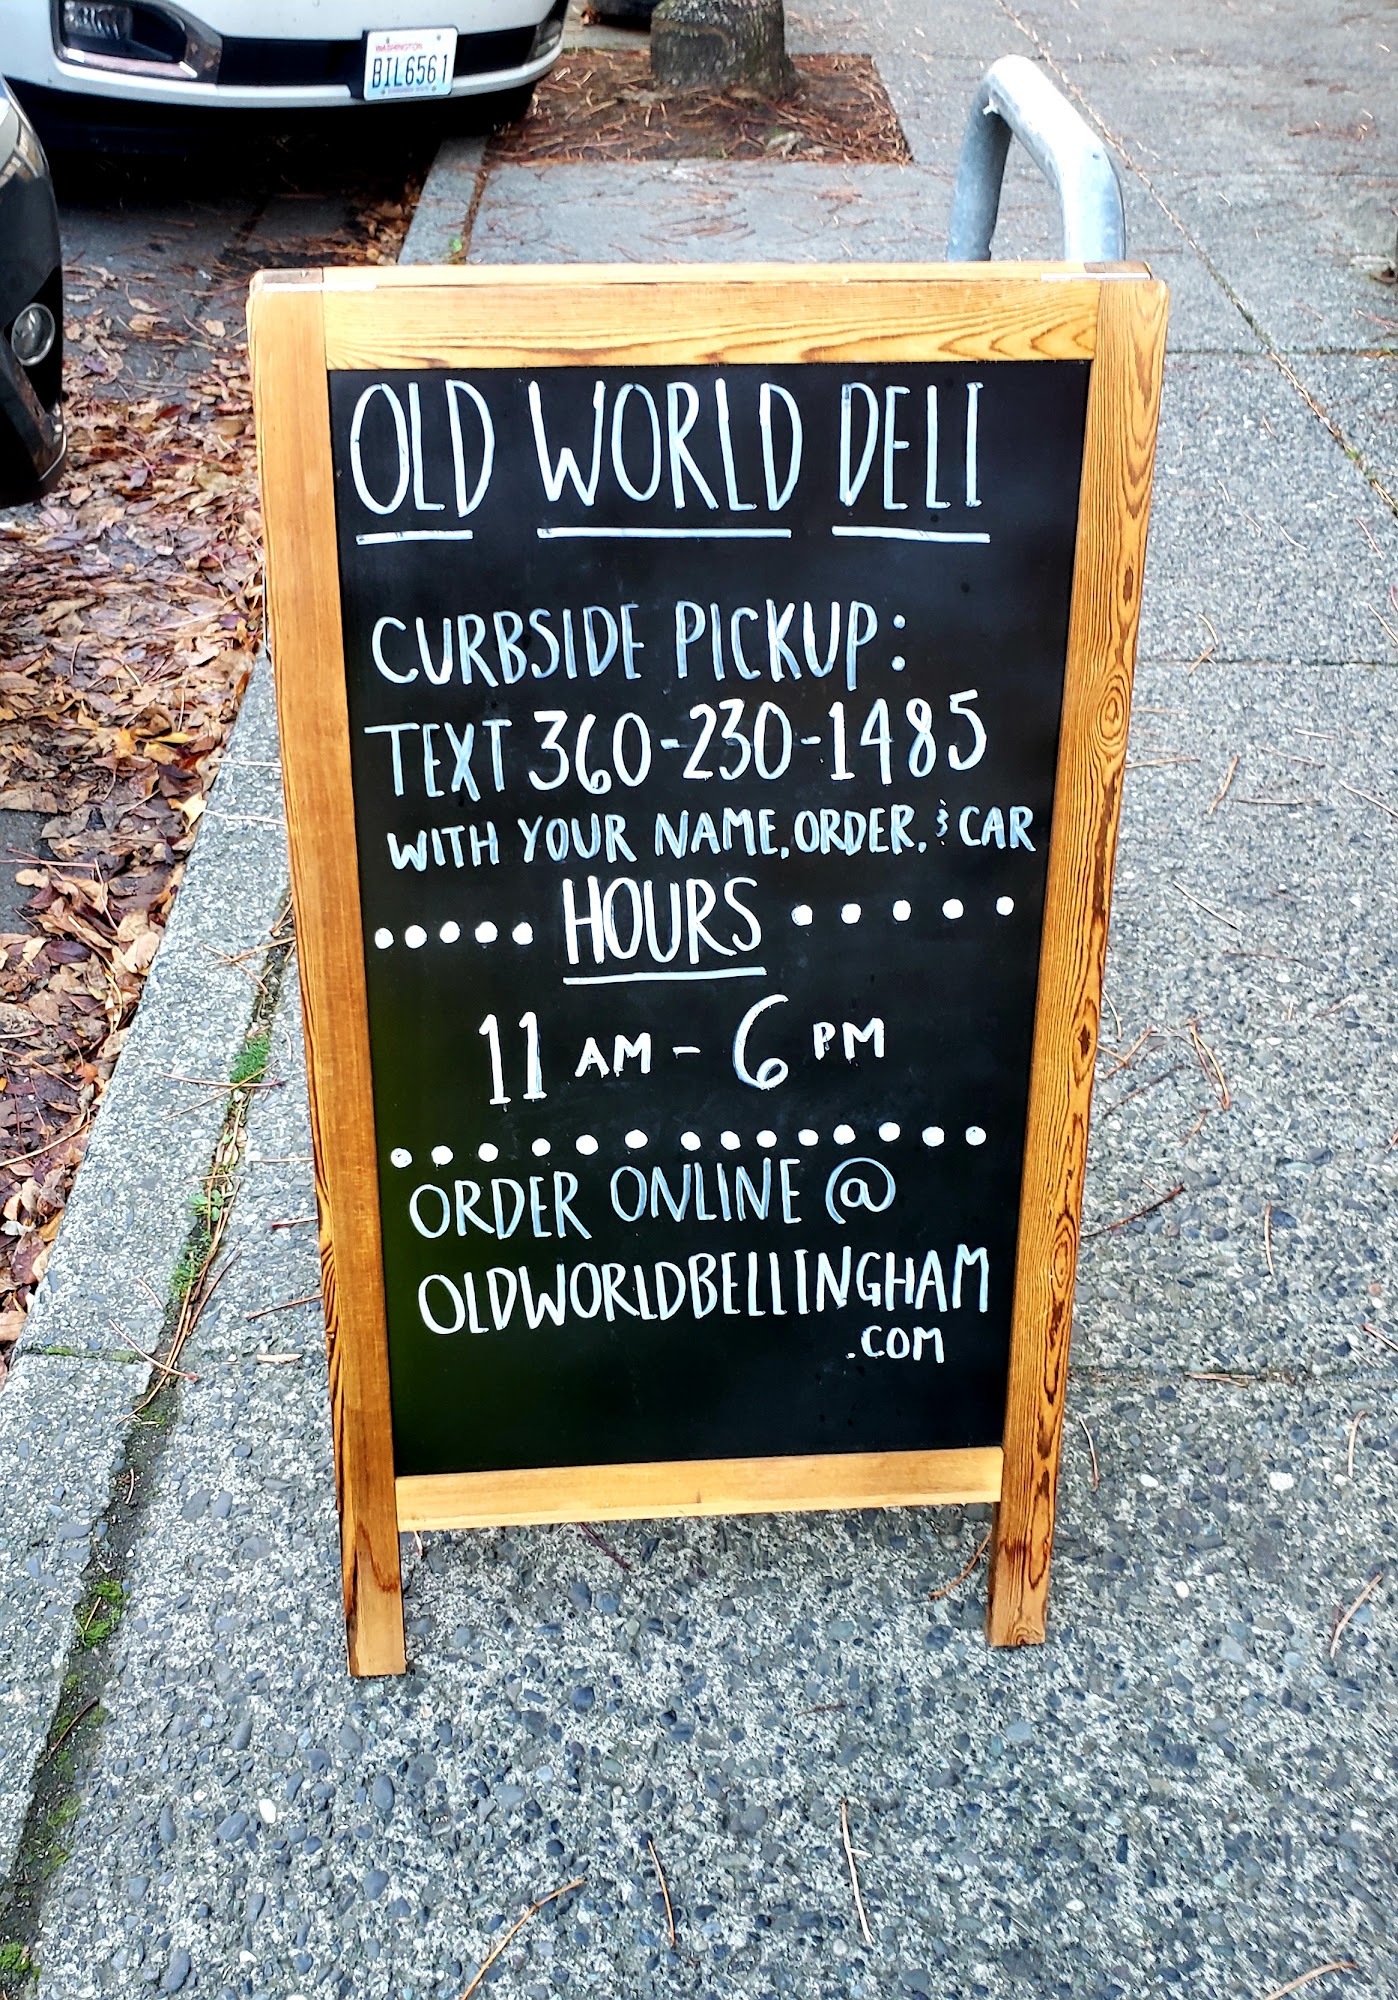 WASHINGTON
BIL6561
OLD WORLD DELI
CURBSIDE PICKUP:
TEXT 360-230-1485
WITH YOUR NAME, ORDER, & CAR
HOURS
11 AM - 6 PM
ORDER ONLINE @
OLDWORLDBELLINGHAM
.COM